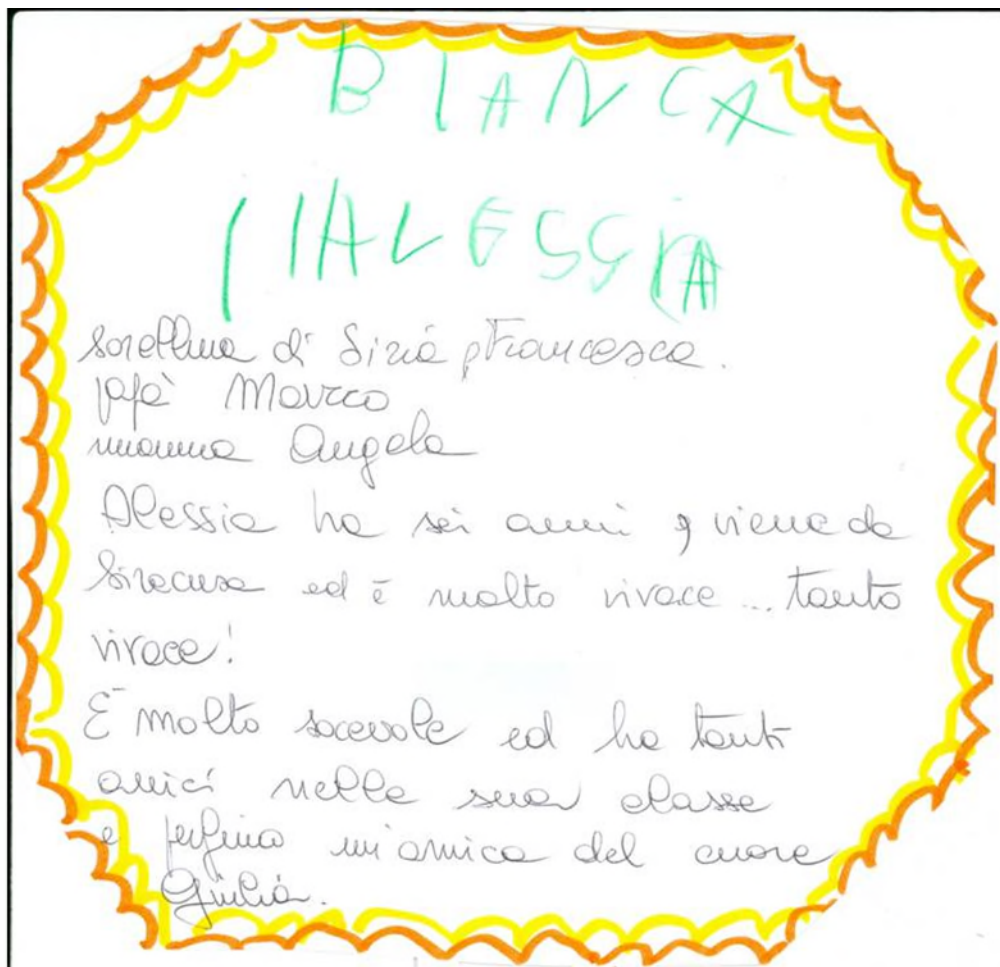 BIANCA
ALESSIA
sorellina di Siria, Francesca.
papà Marco
mamma Angela
Alessia ha sei anni, viene da
Siracusa ed è molto vivace... tanto
vivace!
È molto socevole ed ha tanti
amici nella sua classe
e perfino un'amica del cuore
Giulia.